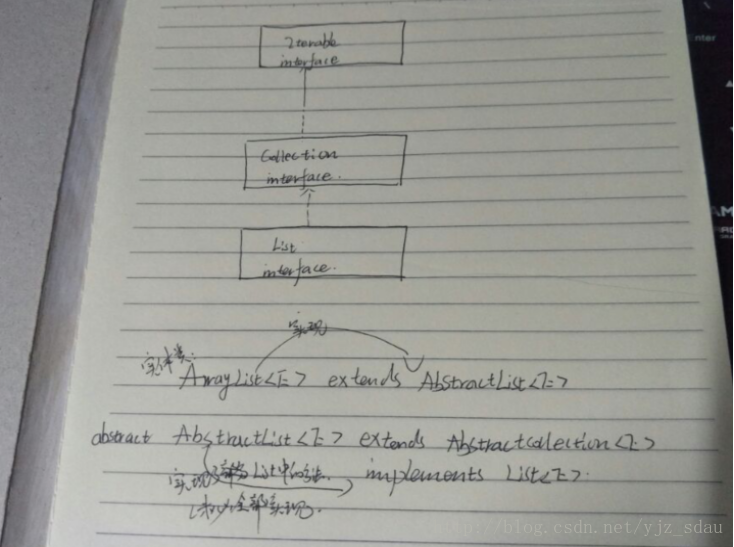 Iterable
interface
Collection
interface.
List
interface.
实现
实体类:
ArrayList<E> extends AbstractList<E>
abstract AbstractList<E> extends AbstractCollection<E>
实现 List中的方法. implements List<E>.
全部实现).
http://blog.csdn.net/yjz_sdau